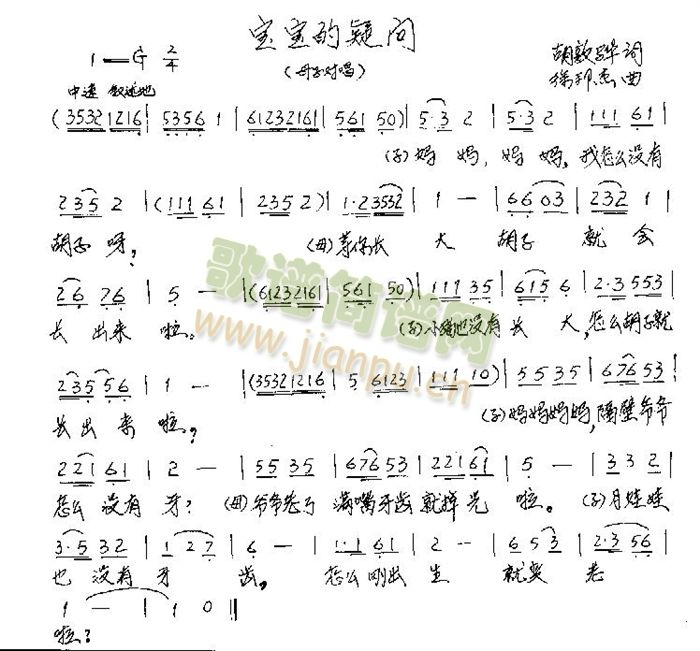 宝宝的疑问
1=G 2/4
(母子对唱)
胡敦骅 词
曲
中速 叙述地
(3532 1216 | 5356 1 | 61232161 | 561 50) | 5·3 2 | 5·3 2 | 111 61 |
(子)妈 妈, 妈 妈, 我怎么没有
235 2 | (111 61 | 235 2) | 1·2 3532 | 1 — | 66 03 | 232 1 1 |
胡子 呀? (母)等你长 大 胡子 就 会
26 76 | 5 — | (61232161 | 561 50) | 111 35 | 615 6 | 2·3 553 |
长 出来 啦。 (子)小猫也没有 长 大, 怎么胡子就
235 56 | 1 — | (35321216 | 5 6123 | 111 10) | 55 35 | 6765 3 |
长出 来 啦? (子)妈妈妈妈, 隔壁爷爷
221 61 | 2 — | 55 35 | 676 53 | 221 61 | 5 — | 33 2 |
怎么 没有 牙? (母)爷爷老了 满嘴牙齿 就掉光 啦。 (子)月娃娃
3·5 32 | 1 27 | 6 — | 1·1 61 | 2 — | 65 3 | 2·3 56 |
也 没有 牙 齿, 怎么刚出 生 就变 老
1 — | 1 0 ‖
啦?
歌谱简谱网
www.jianpu.cn